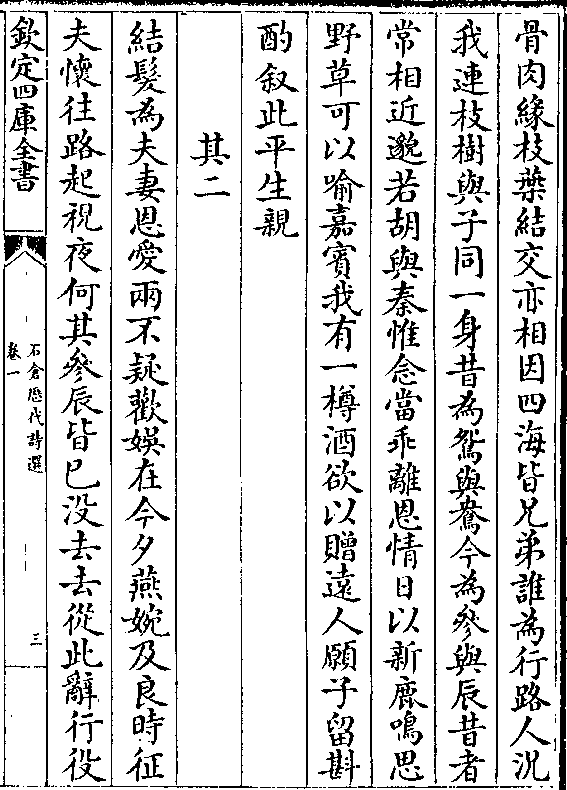 骨肉緣枝葉結交亦相因四海皆兄弟誰為行路人況
我連枝樹與子同一身昔為鴛與鴦今為參與辰昔者
常相近邈若胡與秦惟念當乖離恩情日以新鹿鳴思
野草可以喻嘉賓我有一樽酒欲以贈遠人願子留斟
酌叙此平生親
其二
結髮為夫妻恩愛兩不疑歡娛在今夕燕婉及良時征
夫懷往路起視夜何其參辰皆已没去去從此辭行役
欽定四庫全書
石倉歷代詩選
卷一
三